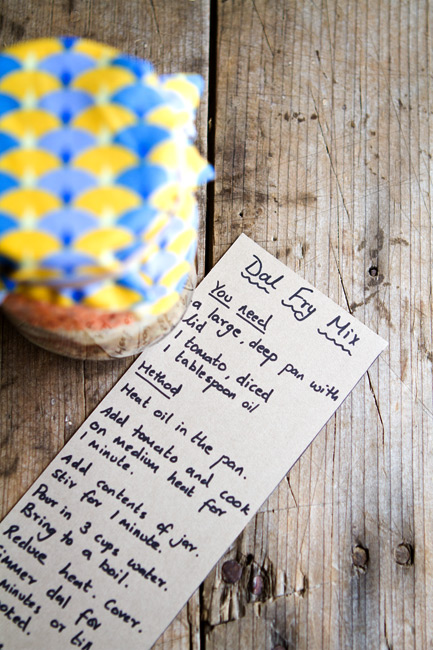 Dal Fry Mix
You need
a large, deep pan with
lid
1 tomato, diced
1 tablespoon oil
Method
Heat oil in the pan.
Add tomato and cook
on medium heat for
1 minute.
Add contents of jar.
Stir for 1 minute.
Pour in 3 cups water.
Bring to a boil.
Reduce heat. Cover.
dal for
minutes or